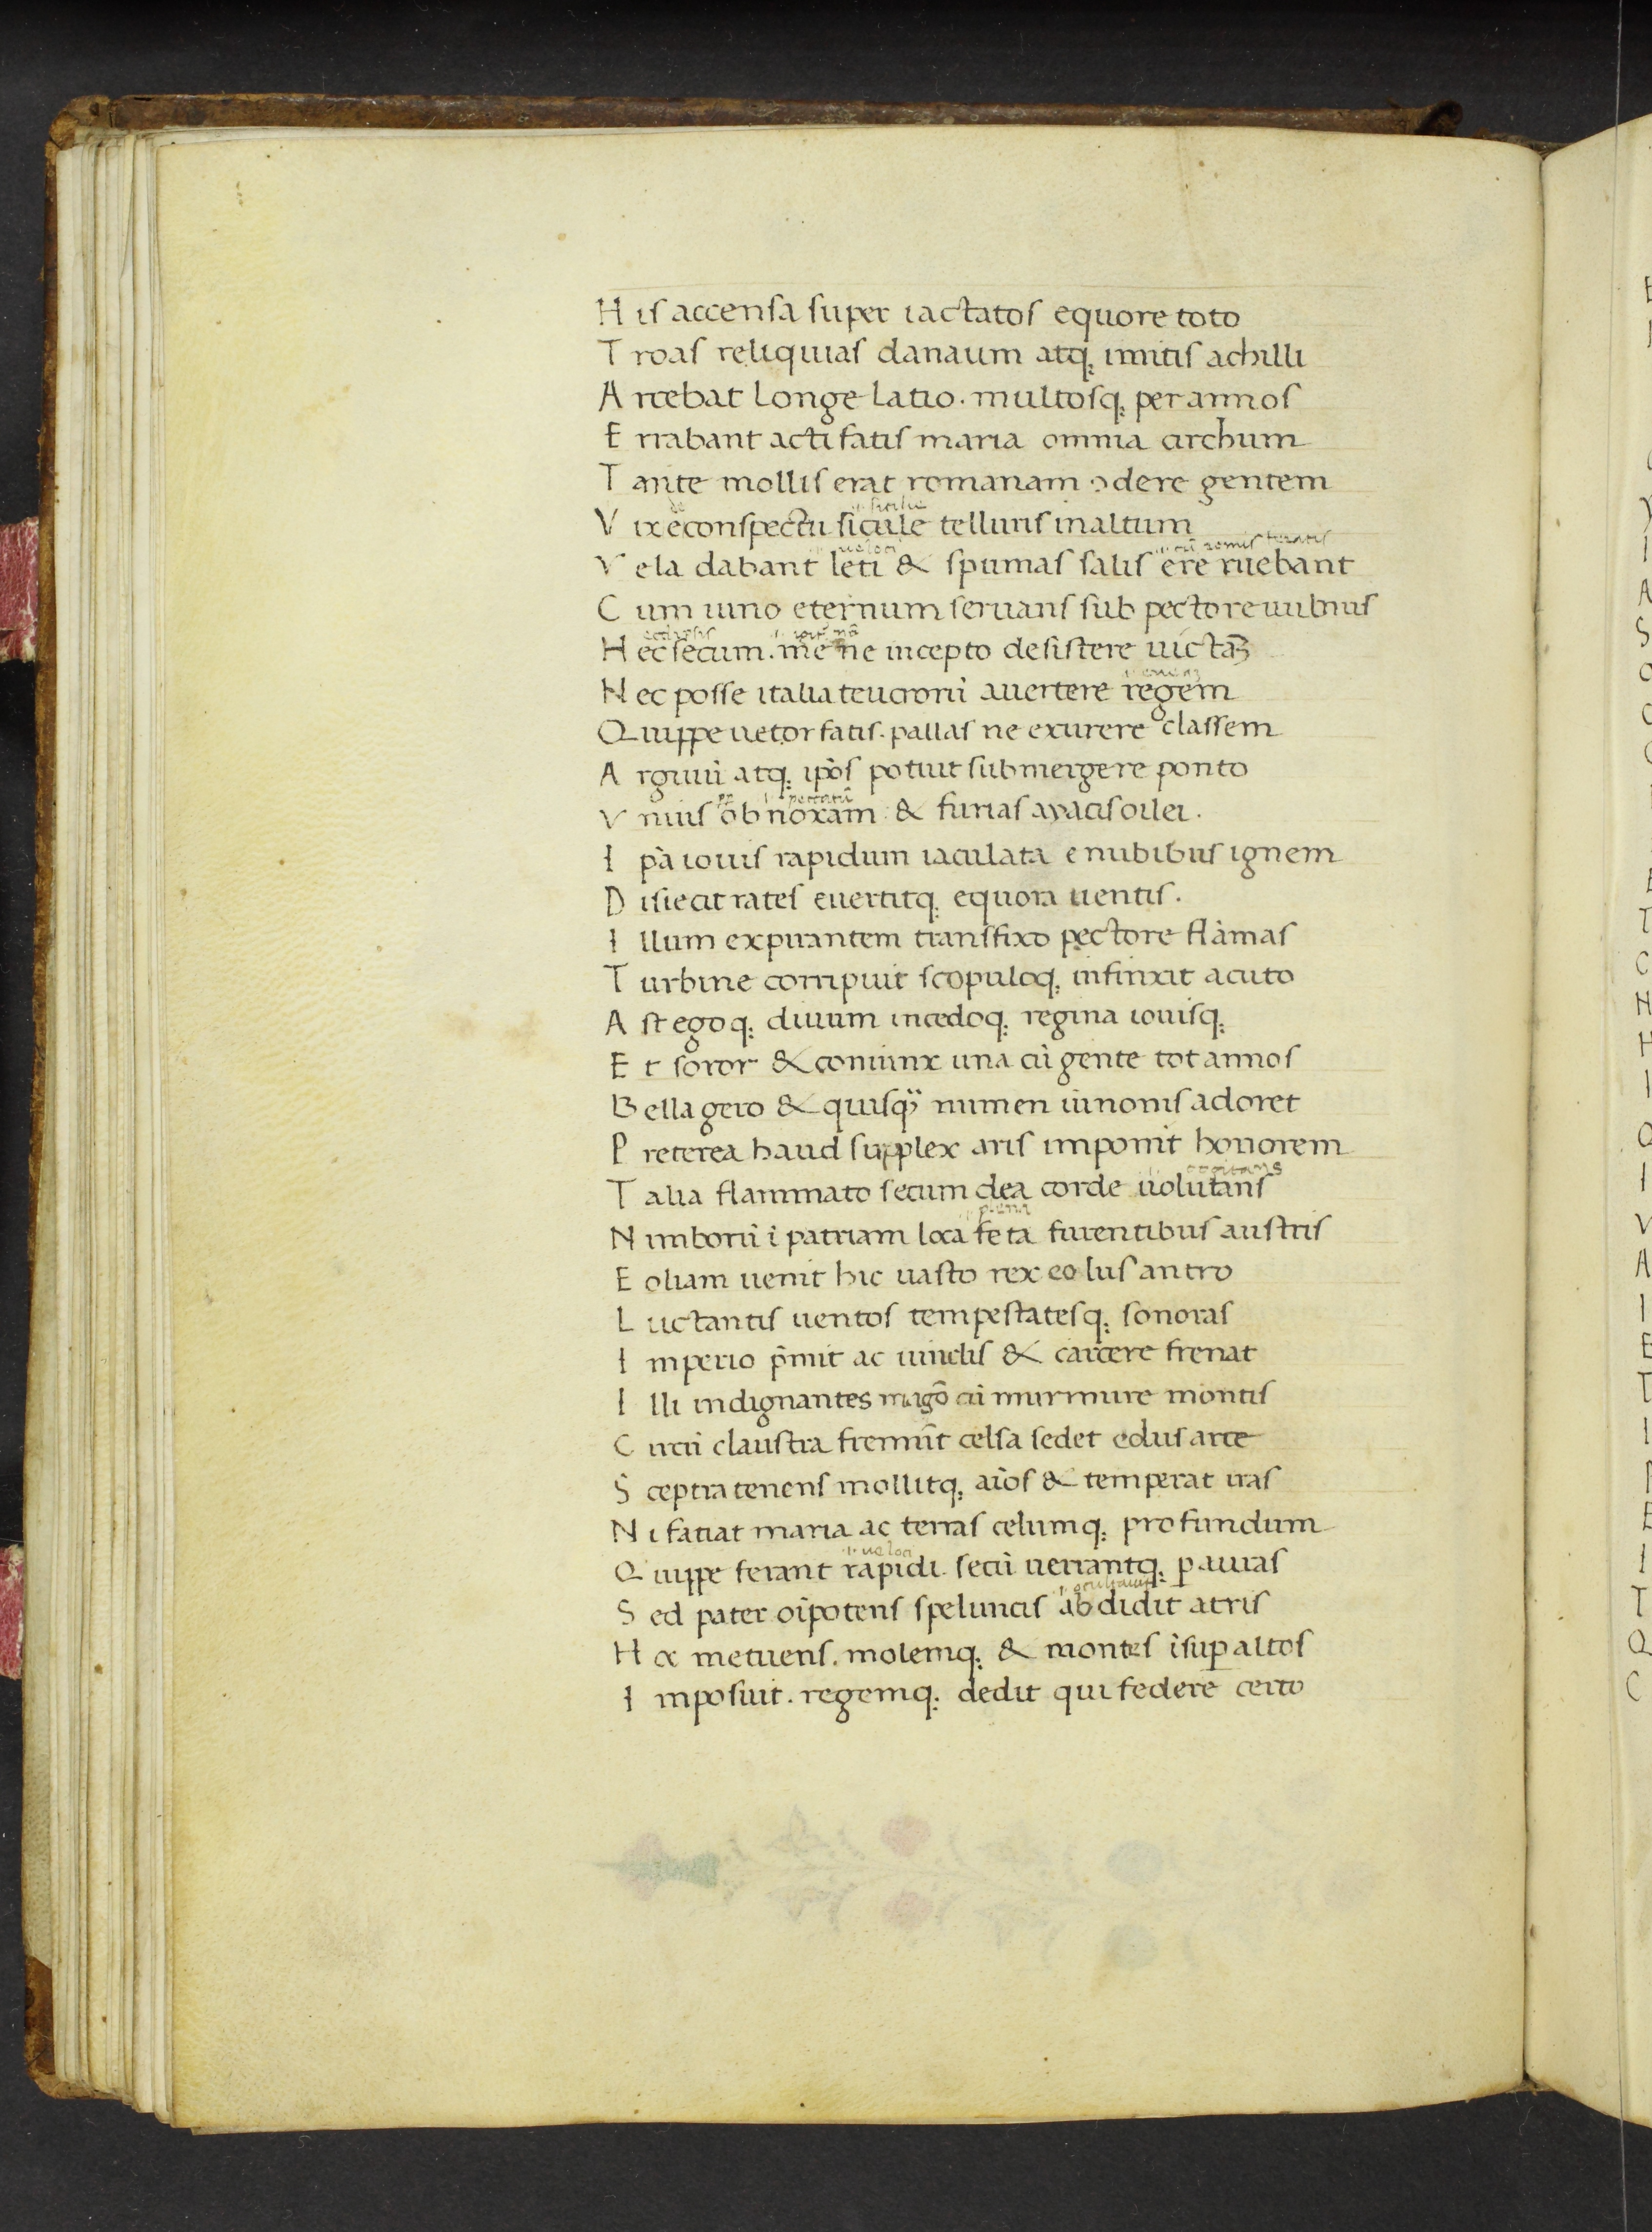 H is accensa super iactatos equore toto
T roas reliquias danaum atq; imitis achilli
A rcebat longe latio. multosq; per annos
E rrabant acti fatis maria omnia circhum
T ante mollis erat romanam ↄdere gentem
de .i. sicilie
V ix e conspectu sicule telluris in altum
V ela dabant leti & spumas salis ere ruebant
C um iuno eternum seruans sub pectore uulnus
H ec secum. me ne incepto desistere uictaꝫ
N ec posse italia teucrorū auertere regem
Q uippe uetor fatis. pallas ne exurere classem
A rguiū atq; ip̄os potuit submergere ponto
V nius ob noxam & furias ayacis oilei.
I pā iouis rapidum iaculata e nubibus ignem
D isiecit rates euertitq; equora uentis.
I llum expirantem transfixo pectore flāmas
T urbine corripuit scopuloq; infinxit acuto
A st ego q; diuum incedoq; regina iouisq;
E t soror & coniunx una cū gente tot annos
B ella gero & quisq̈ numen iunonis adoret
P reterea haud supplex aris imponit honorem
.i. cogitans
T alia flammato secum dea corde uolutans
.i. plena
N imborū ī patriam loca feta furentibus austris
E oliam uenit hic uasto rex eolus antro
L uctantis uentos tempestatesq; sonoras
I mperio p̄mit ac uinclis & carcere frenat
I lli indignantes magō cū murmure montis
C ircū claustra fremūt celsa sedet eolus arce
S ceptra tenens mollitq; aīos & temperat iras
N i fatiat maria ac terras celumq; profundum
Q uippe ferant rapidi secū uerrantq; ꝑ auras
S ed pater oīpotens speluncis abdidit atris
H oc metuens. molemq; & montes īsuꝑ altos
I mposuit. regemq; dedit qui federe certo